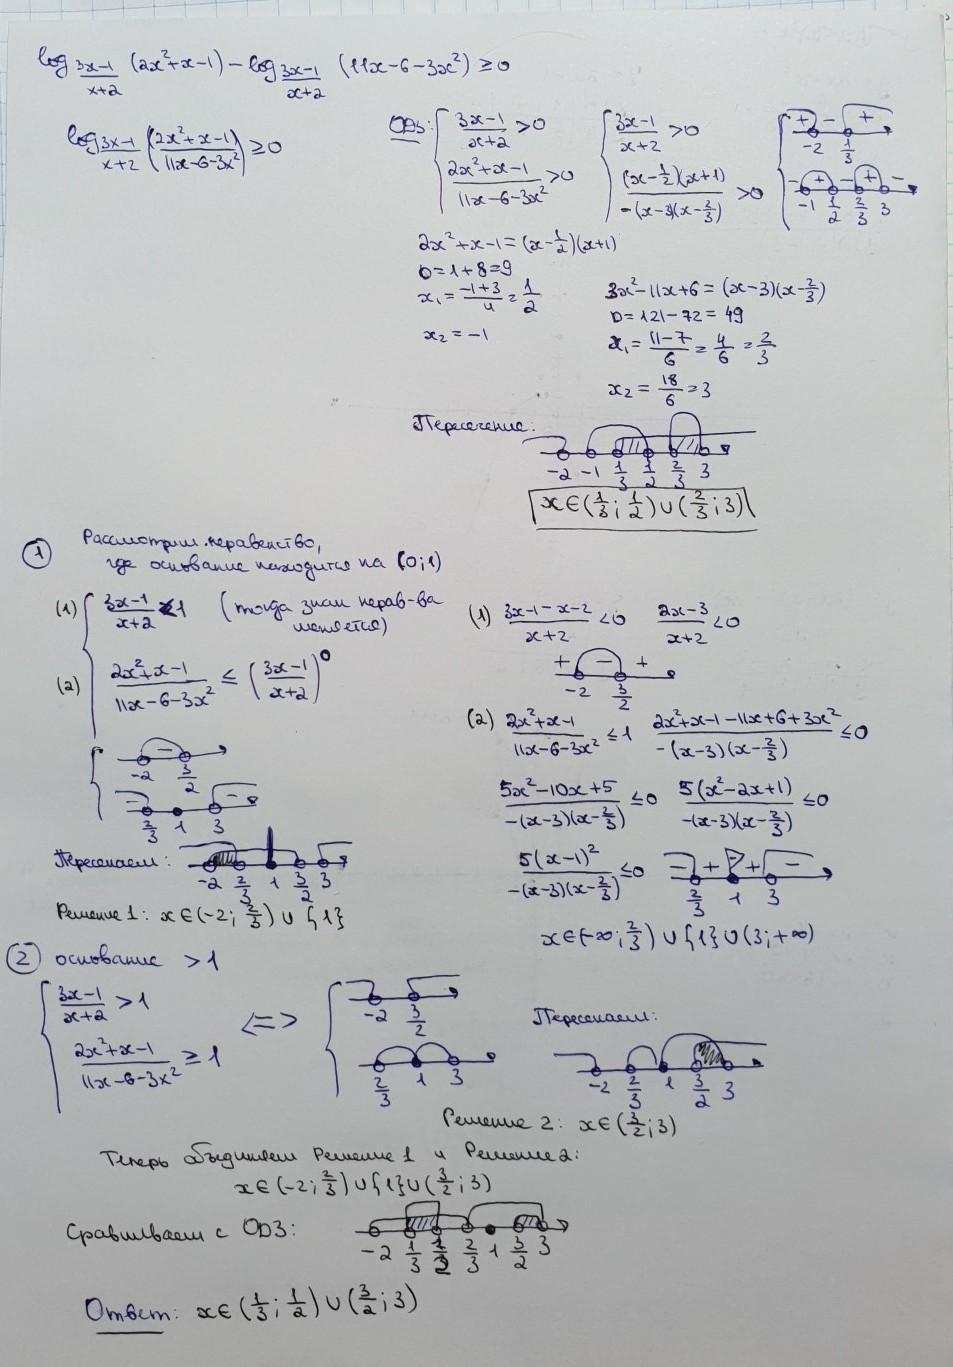 log_{\frac{3x-1}{x+2}} (2x²+x-1) - log_{\frac{3x-1}{x+2}} (11x-6-3x²) ≥ 0
log_{\frac{3x-1}{x+2}} (\frac{2x²+x-1}{11x-6-3x²}) ≥ 0
ОДЗ: { \frac{3x-1}{x+2} > 0 { \frac{3x-1}{x+2} > 0 { + - + -2 \frac{1}{3}
\frac{2x²+x-1}{11x-6-3x²} > 0 \frac{(x-\frac{1}{2})(x+1)}{-(x-3)(x-\frac{2}{3})} > 0 - + - + - -1 \frac{1}{2} \frac{2}{3} 3
2x²+x-1 = (x-\frac{1}{2})(x+1)
D=1+8=9
x₁ = \frac{-1+3}{4} = \frac{1}{2}
x₂ = -1
3x²-11x+6 = (x-3)(x-\frac{2}{3})
D = 121-72 = 49
x₁ = \frac{11-7}{6} = \frac{4}{6} = \frac{2}{3}
x₂ = \frac{18}{6} = 3
Пересечение:
-2 -1 \frac{1}{3} \frac{1}{2} \frac{2}{3} 3
x∈(\frac{1}{3}; \frac{1}{2})∪(\frac{2}{3}; 3)
① Рассмотрим неравенство,
где основание находится на (0;1)
(1) { \frac{3x-1}{x+2} < 1 (тогда знак нерав-ва
меняется)
(2) \frac{2x²+x-1}{11x-6-3x²} ≤ (\frac{3x-1}{x+2})⁰
- -2 \frac{3}{2}
- - \frac{2}{3} 1 3
Пересекаем:
-2 \frac{2}{3} 1 \frac{3}{2} 3
Решение 1: x∈(-2; \frac{2}{3}) ∪ {1}
(1) \frac{3x-1-x-2}{x+2} < 0 \frac{2x-3}{x+2} < 0
+ - +
-2 \frac{3}{2}
(2) \frac{2x²+x-1}{11x-6-3x²} ≤ 1 \frac{2x²+x-1-11x+6+3x²}{-(x-3)(x-\frac{2}{3})} ≤ 0
\frac{5x²-10x+5}{-(x-3)(x-\frac{2}{3})} ≤ 0 \frac{5(x²-2x+1)}{-(x-3)(x-\frac{2}{3})} ≤ 0
\frac{5(x-1)²}{-(x-3)(x-\frac{2}{3})} ≤ 0 - + + - \frac{2}{3} 1 3
x∈(-∞; \frac{2}{3}) ∪ {1} ∪ (3; +∞)
② основание > 1
{ \frac{3x-1}{x+2} > 1 <=> { -2 \frac{3}{2}
\frac{2x²+x-1}{11x-6-3x²} ≥ 1 \frac{2}{3} 1 3
Пересекаем:
-2 \frac{2}{3} 1 \frac{3}{2} 3
Решение 2: x∈(\frac{3}{2}; 3)
Теперь объединяем Решение 1 и Решение 2:
x∈(-2; \frac{2}{3})∪{1}∪(\frac{3}{2}; 3)
Сравниваем с ОДЗ:
-2 \frac{1}{3} \frac{1}{2} \frac{2}{3} 1 \frac{3}{2} 3
Ответ: x∈(\frac{1}{3}; \frac{1}{2})∪(\frac{3}{2}; 3)